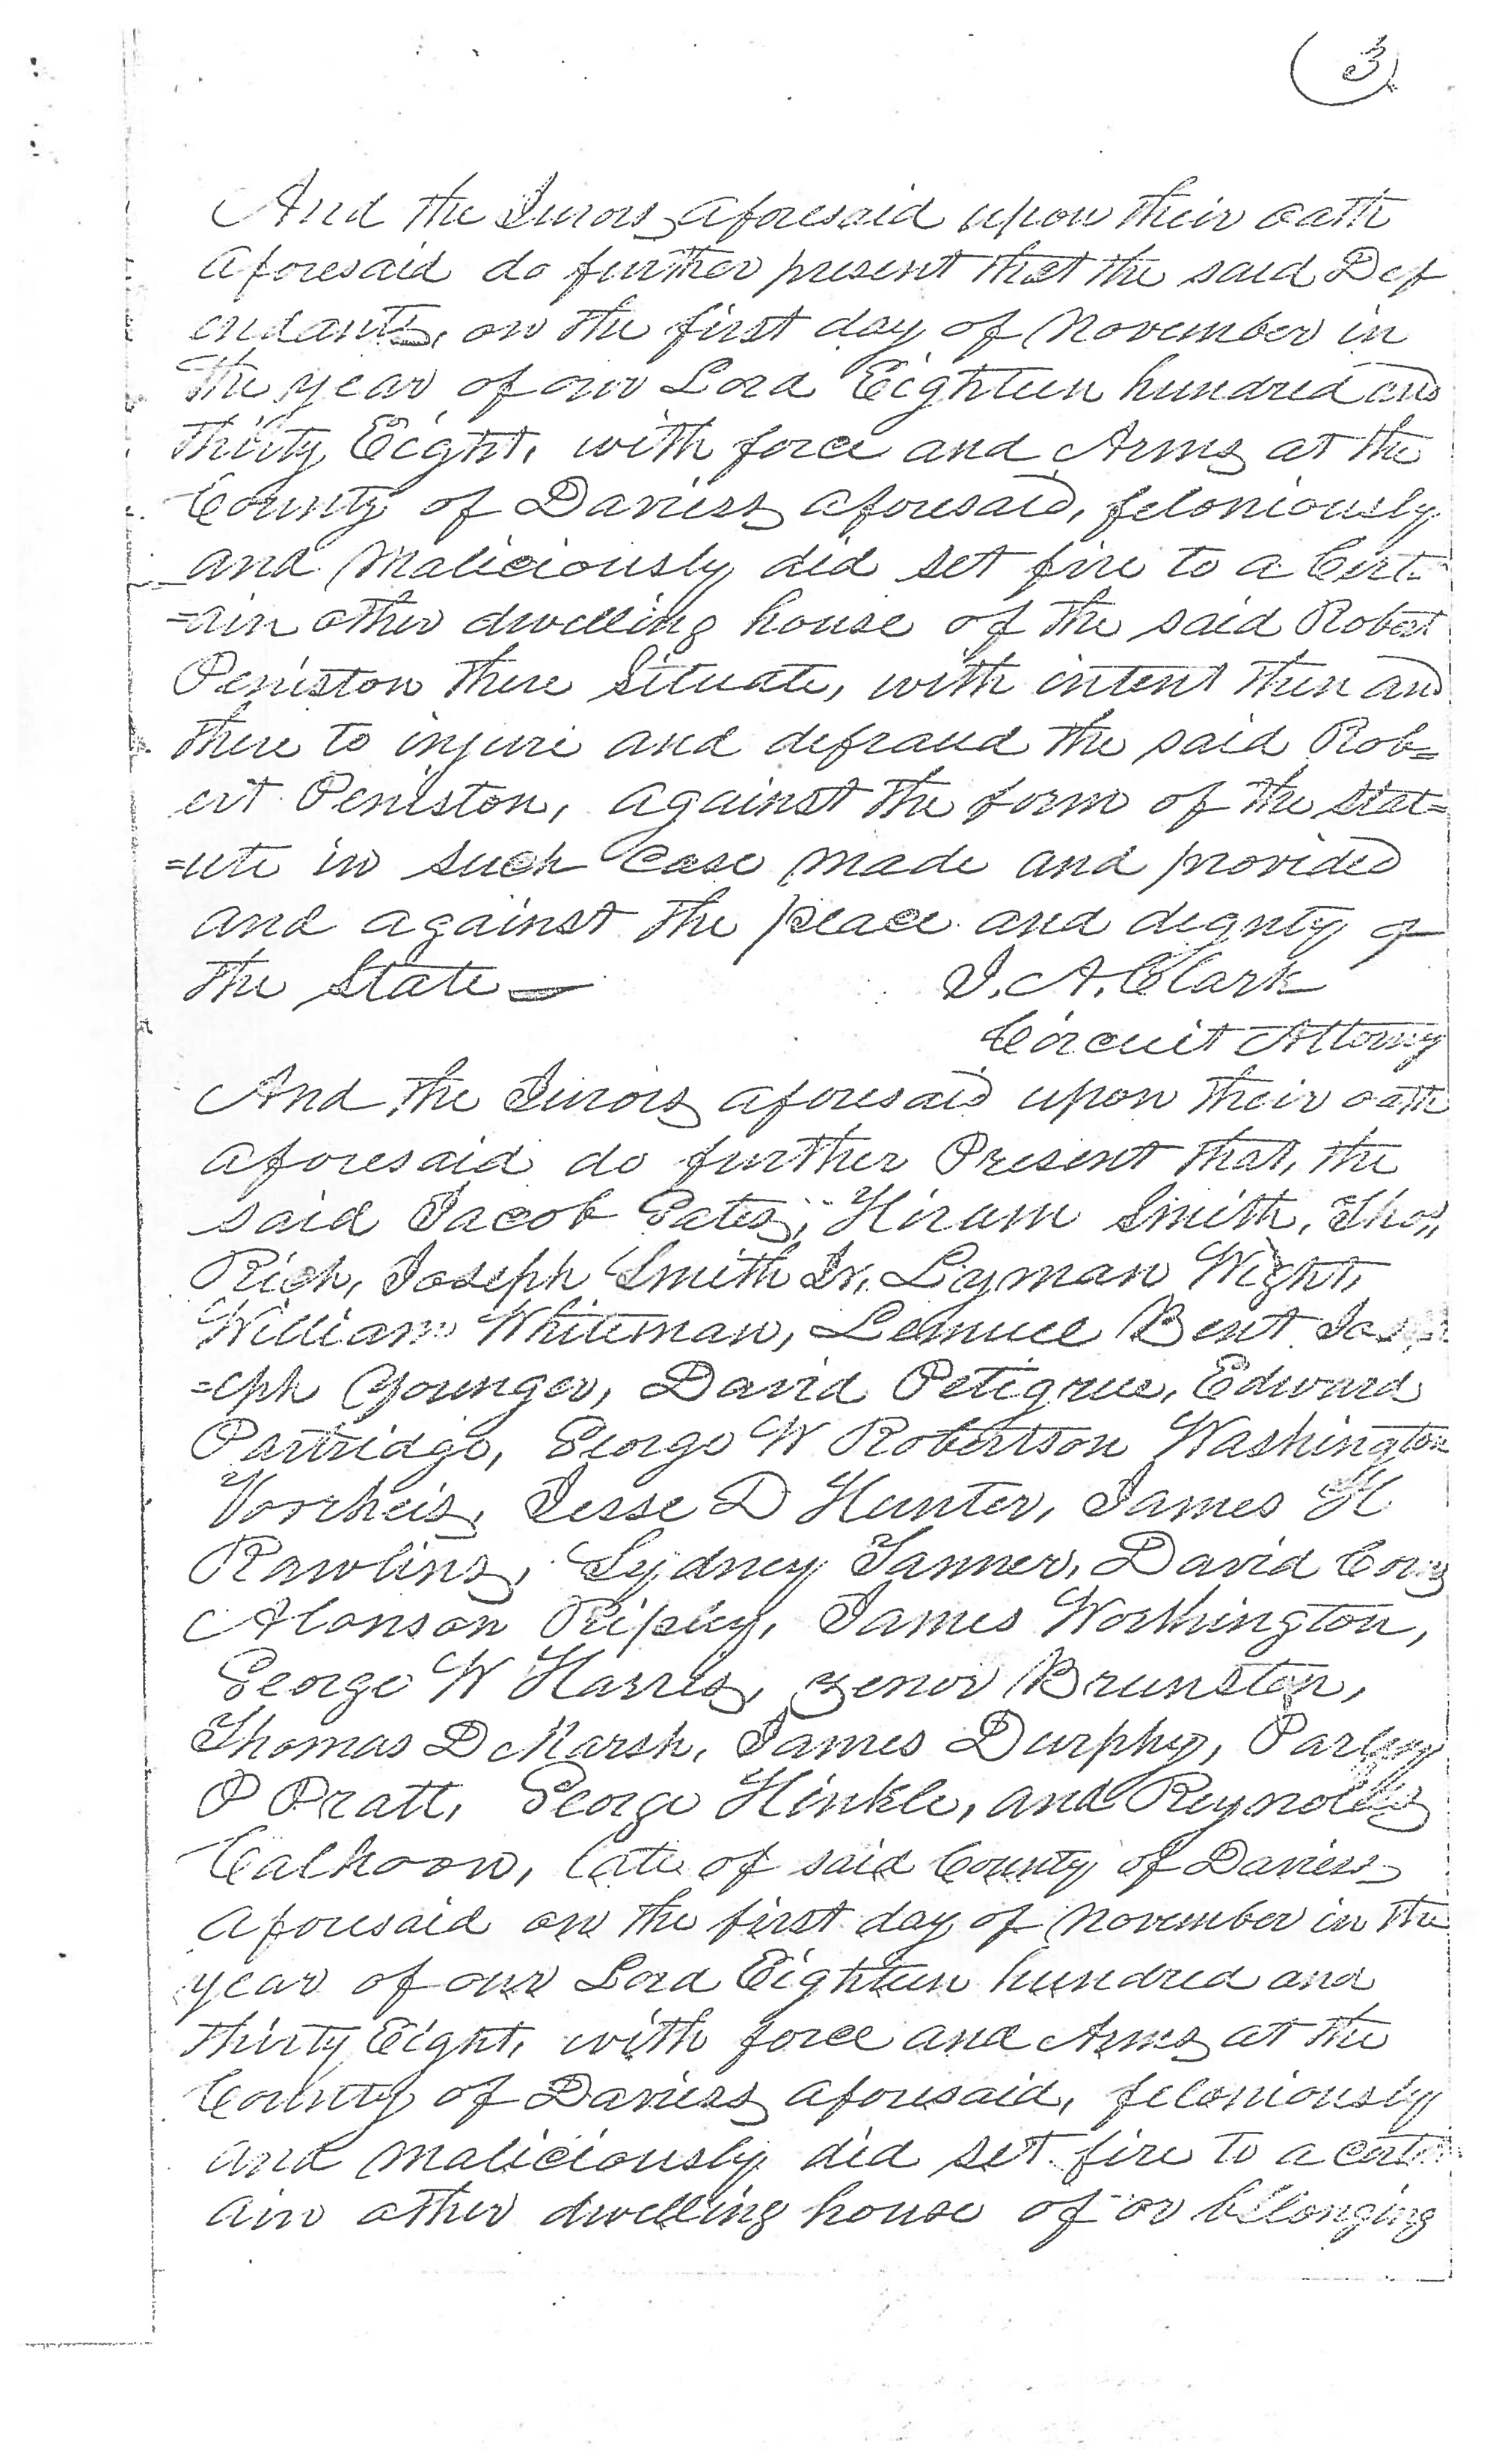 3
And the Jurors aforesaid upon their oath
aforesaid do further present that the said Def
endants, on the first day of November in
the year of our Lord Eighteen hundred and
thirty Eight, with force and Arms at the
County of Daviess aforesaid, feloniously
and Maliciously did set fire to a Cert-
=ain other dwelling house of the said Robert
Peniston there Situate, with intent then and
there to injure and defraud the said Rob=
ert Peniston, against the form of the Stat=
=ute in such Case made and provided
and against the peace and dignty of
the State — J. A. Clark
Circuit Attorny
And the Jurors aforesaid upon their oath
aforesaid do further Present that, the
said Jacob Gates, Hiram Smith, Thos,,
Rich, Joseph Smith Jr, Lyman Wight,
William Whiteman, Lemuel Bent Jos
=eph Younger, David Petigrue, Edward
Partridge, George W Robertson Washington
Voorheis, Jesse D Hunter, James H
Rawlins, Sydney Tanner, David
Alonson Ripley, James Worthington,
George W Harris, Zenor Brunston,
Thomas D Marsh, James Durphey, Parley
P Pratt, George Hinkle, and Reynolds
Calhoon, late of said County of Daviess
aforesaid on the first day of November in the
year of our Lord Eighteen hundred and
thirty Eight, with force and Arms at the
County of Daviess aforesaid, feloniously
and maliciously did set fire to a cert
ain other dwelling house of or bellonging